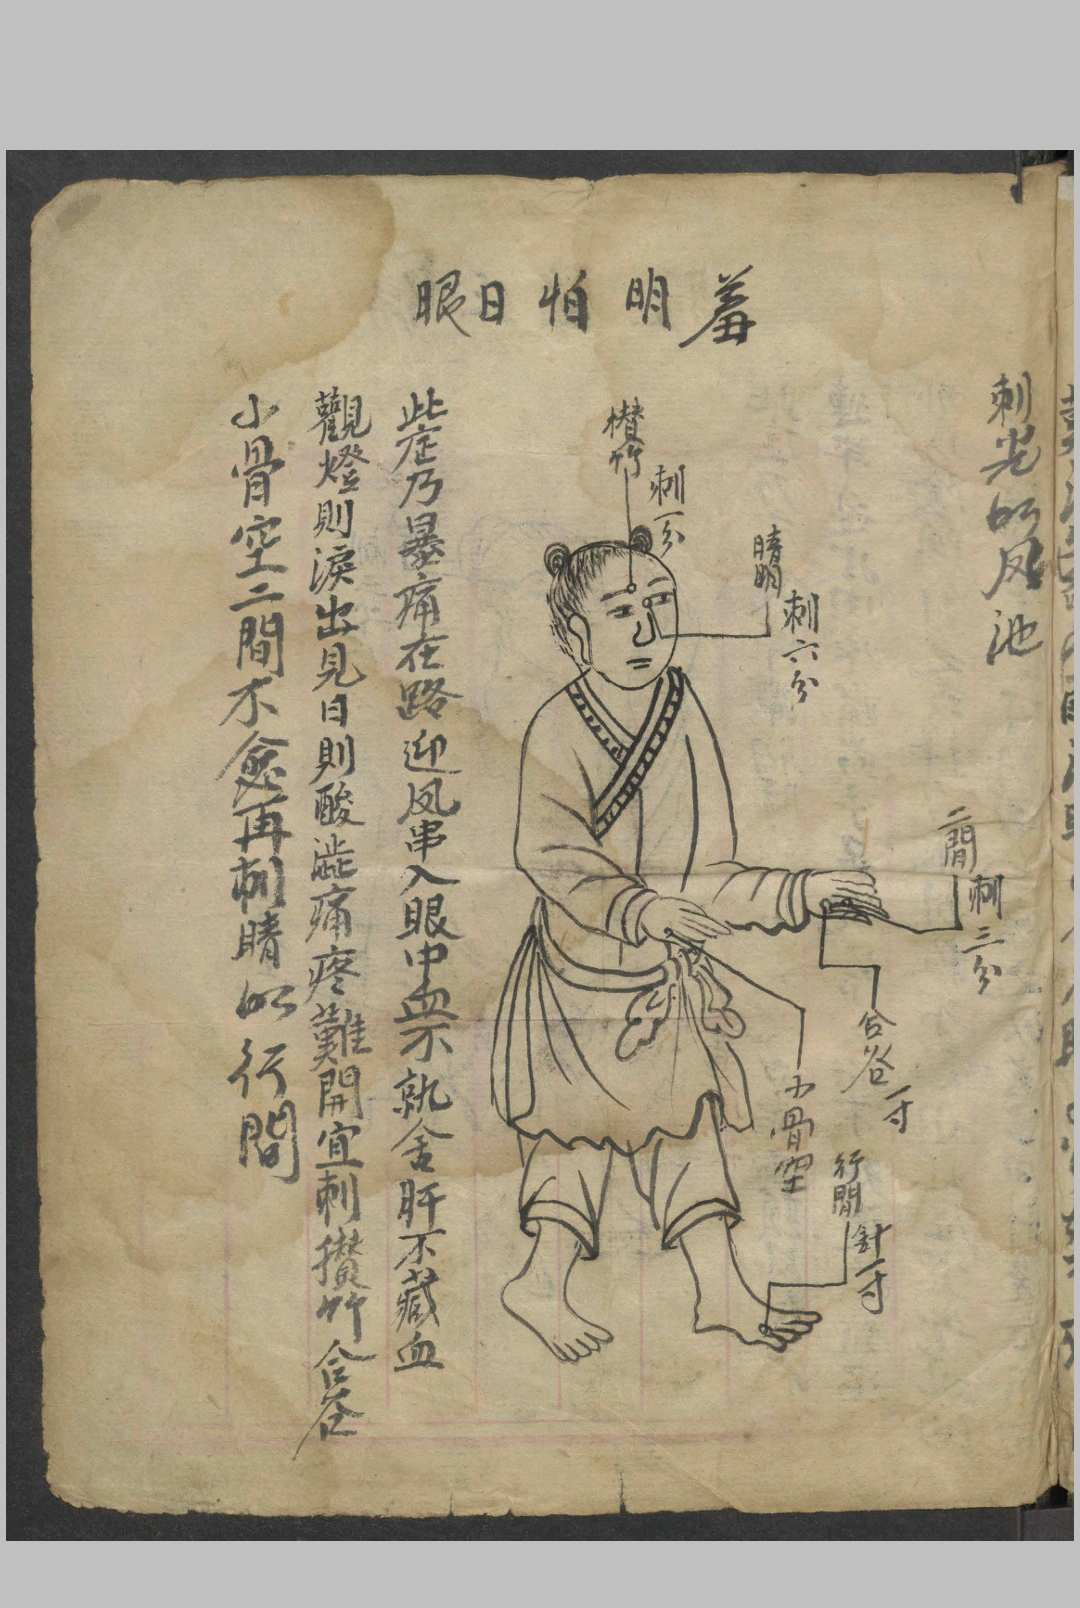 刺光明风池
羞明怕日眼
攅竹
刺一分
睛明
刺六分
二間
刺三分
合谷
一寸
小骨空
行間
針一寸
此症乃暴痛在路迎风串入眼中血不就舍肝不藏血
觀燈則淚出見日則酸澁痛疼難開宜刺攢竹合谷
小骨空二間不愈再刺睛明行間